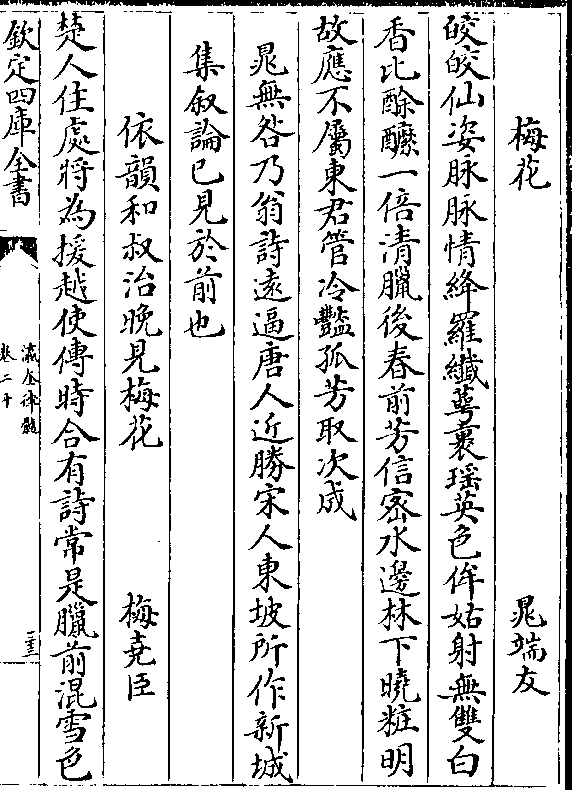 梅花　晁端友
皎皎仙姿脉脉情絳羅纖萼裹瑶英色侔姑射無雙白
香比酴醿一倍清臘後春前芳信宻水邊林下曉粧明
故應不屬東君管冷豔孤芳取次成
晁無咎乃翁詩逺逼唐人近勝宋人東坡所作新城
集叙論已見於前也
依韻和叔治晚見梅花　梅堯臣
楚人住處將為援越使傳時合有詩常是臘前混雪色
欽定四庫全書
瀛奎律髓
卷二十
二十三